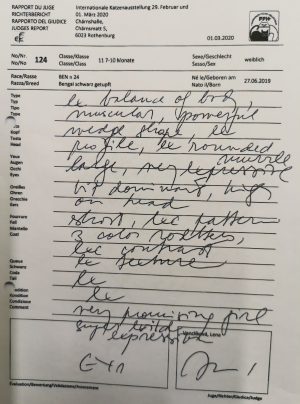 RAPPORT DU JUGE
RICHTERBERICHT
RAPORTO DEL GIUDICE
JUDGES REPORT
Internationale Katzenausstellung 29. Februar und
01. März 2020
Chärnshalle,
Chärnsmatt 5,
6023 Rothenburg
01.03.2020
No/Nr. 124
Classe/Klasse
Classe/Class
11 7-10 Monate
Sexe/Geschlecht
Sesso/Sex
weiblich
Race/Rasse
Raza/Breed
BEN n 24
Bengal schwarz getupft
Né le/Geboren am
Nato il/Born
27.06.2019
Type
Typ
Tipo
Type
exc balance of body,
muscular, powerful
Tête
Kopf
Testa
Head
wedge shape, exc
profile, exc rounded
muzzle
Yeux
Augen
Occhi
Eyes
large, very expressive
Oreilles
Ohren
Orecchie
Ears
bit dominant, high
on head
Fourrure
Fell
Mantello
Coat
short, exc pattern
3 color rosettes,
exc contrast
exc texture
Queue
Schwanz
Coda
Tail
exc
Condition
Kondition
Condizione
Condition
exc
Comment
very promising girl
super wild
expression
EX1
Evaluation/Bewertung/Valutazione/Assessment
Lena
Juge/Richter/Giudice/Judge